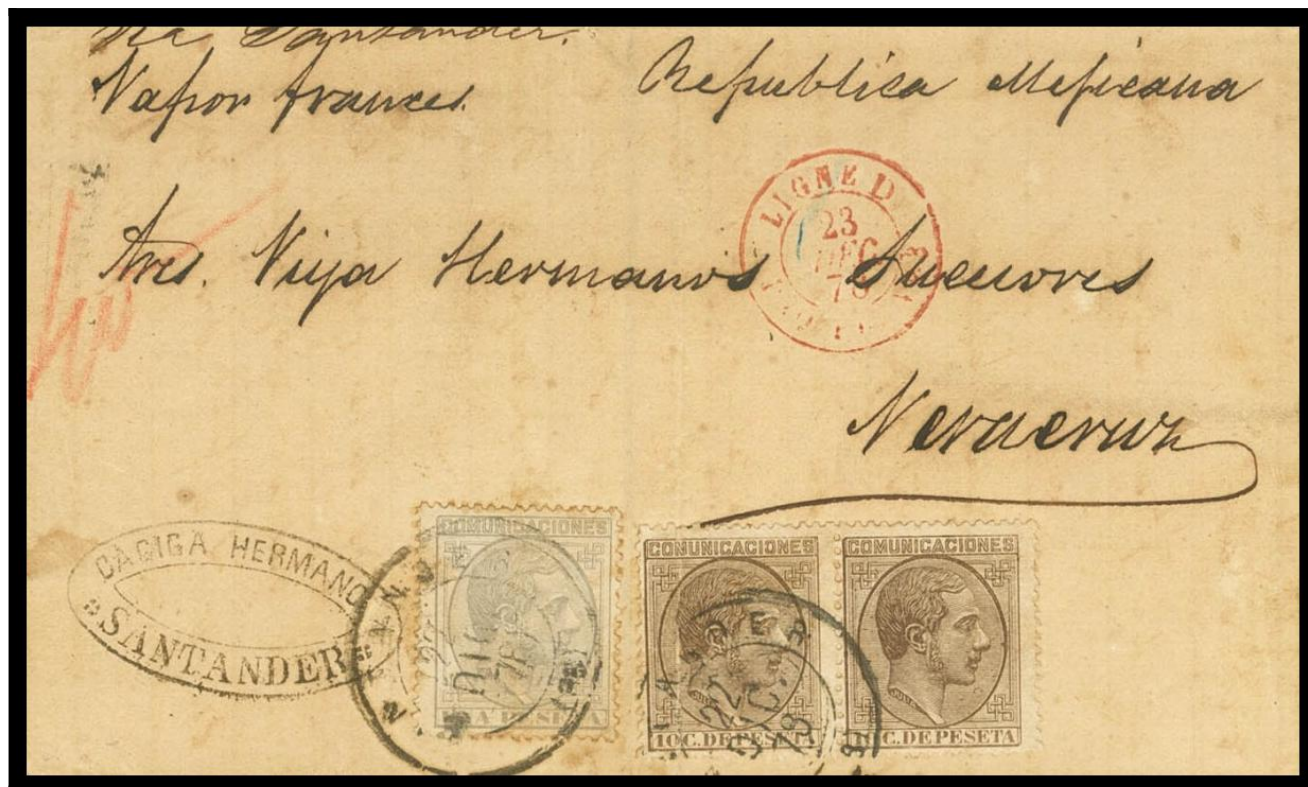 Via Santander.
Vapor frances. Republica Mejicana
LIGNE D
23
DEC
78
Sres. Viya Hermanos Sucesores
Veracruz
CAGIGA HERMANO
SANTANDER
COMUNICACIONES
UNA PESETA
DIC
78
COMUNICACIONES
10 C. DE PESETA
COMUNICACIONES
10 C. DE PESETA
22
DIC
78